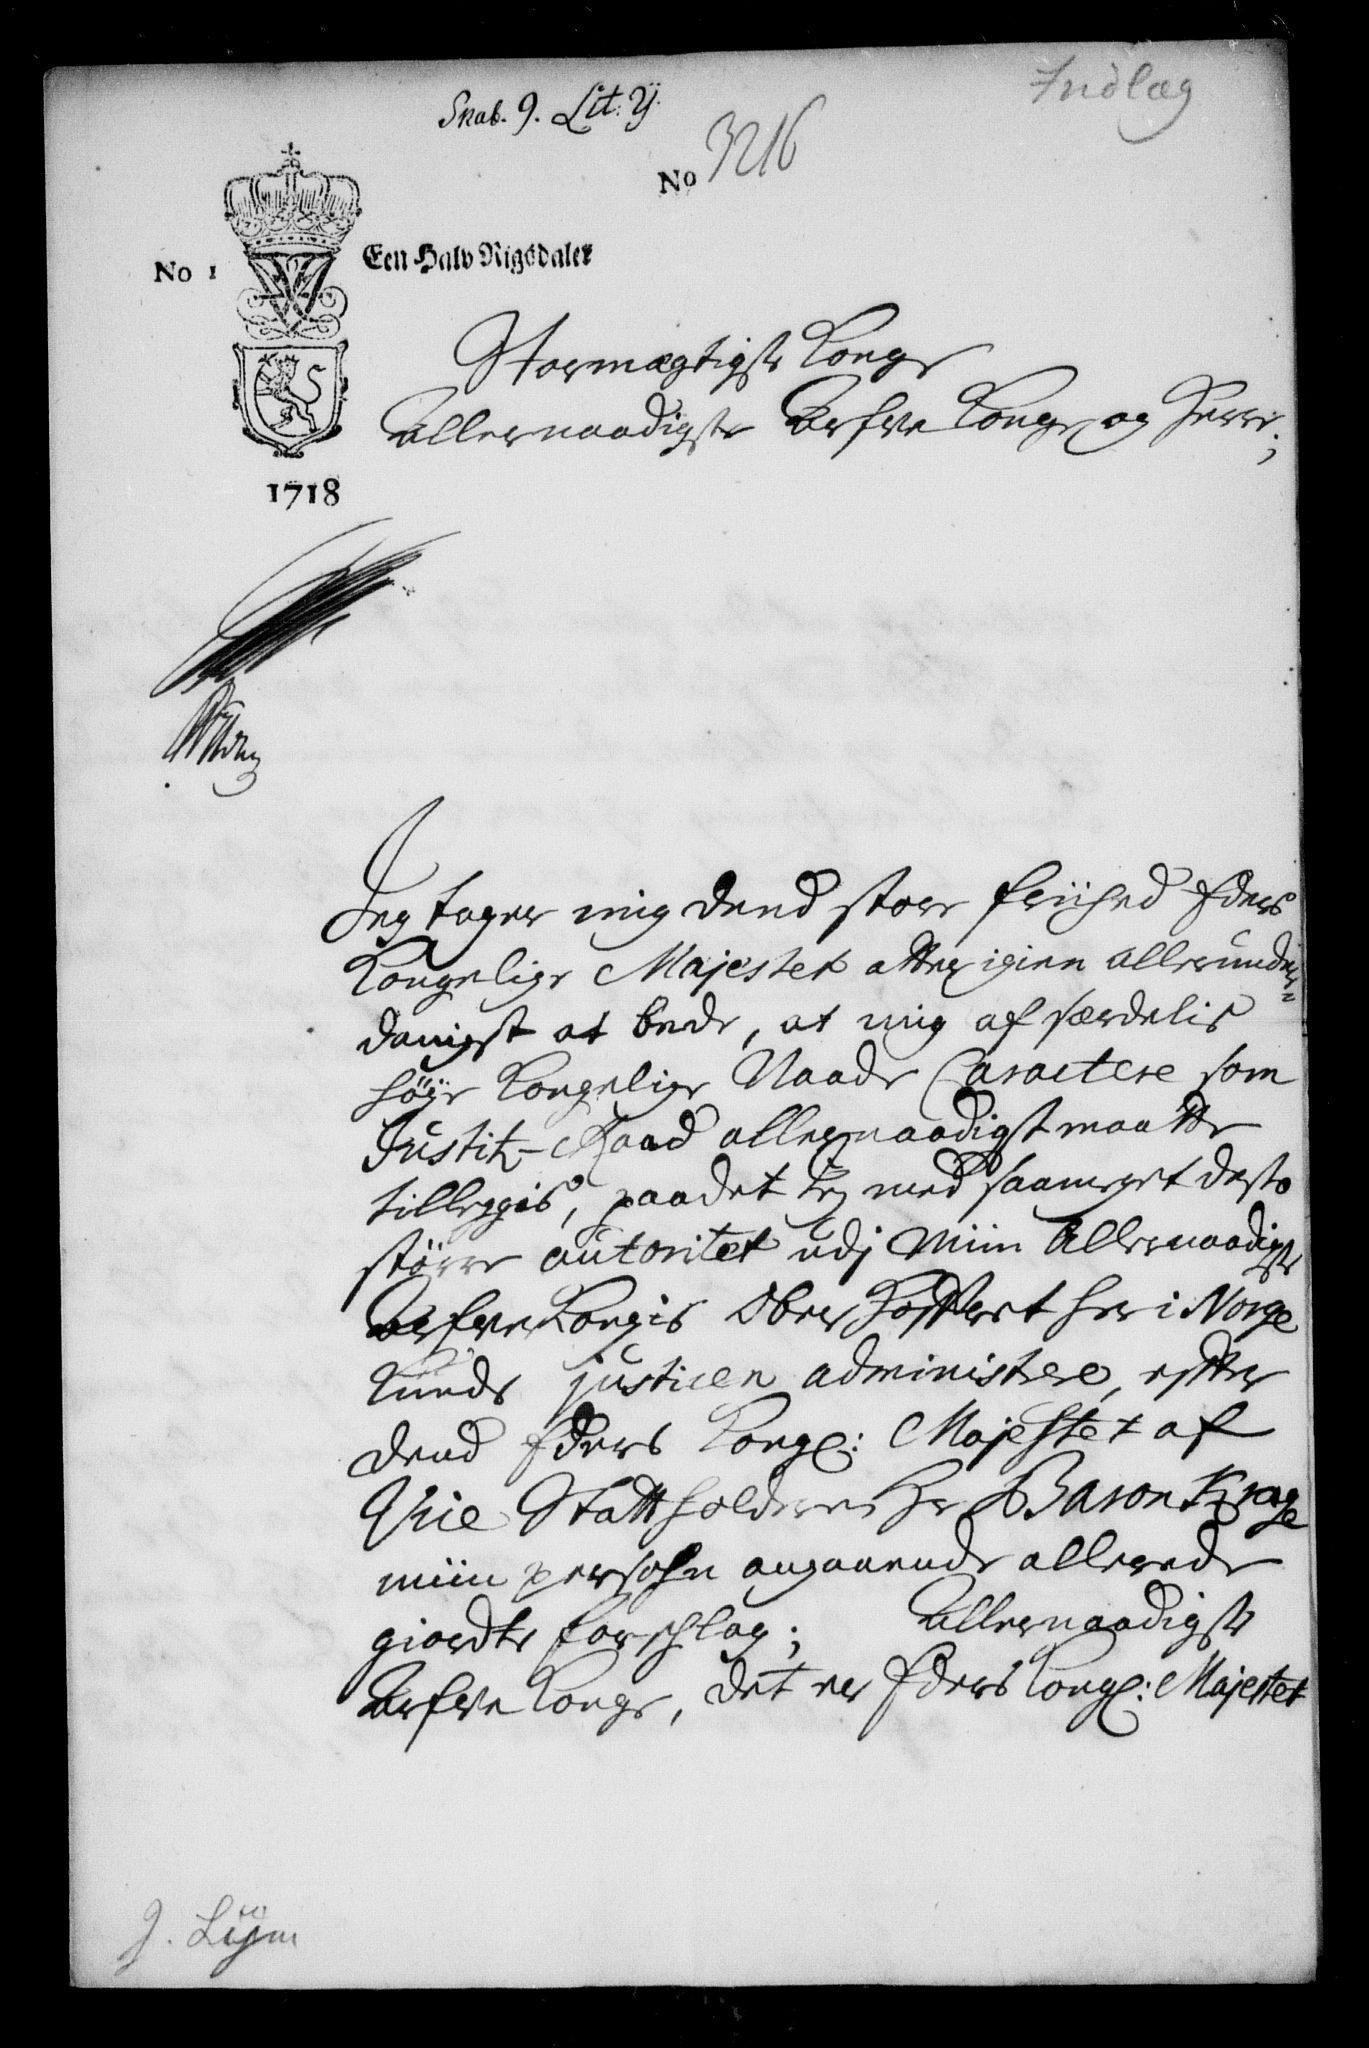 Indlæg
Skab. 9. Lit: Ÿ.
No 3216
No 1 Een Halv Rigsdaler
1718
Stormægtigste Konge
Allernaadigste Arfve Konge og Herre;
Jeg tager mig dend store friihed Eders
Kongelige Majestet atter igien allerunder=
danigst at bede, at mig af særdelis
høÿe Kongelige Naade Caractere som
Justitz-Raad allernaadigst maatte
tilleggis, paadet jeg med saameget desto
større autoritet udj Miin Allernaadigste
Arfve Kongis Ober Hoffret her i Norge
kunde justicen administrere, efter
dend Eders Kongl: Majestet af
Vice Stattholderen Hr Baron Krage
miin persohn angaaende allerede
giordte forschlag; Allernaadigste
Arfve Konge, det er Eders Kongl: Majestet
J. Lÿm